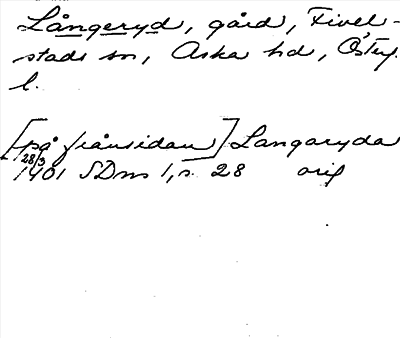 Långeryd, gård, Fivel-
stads sn, Aska hd, Östg.
l.
[på frånsidan] Langaryda
28/3
1401 SDns 1, s. 28 orig